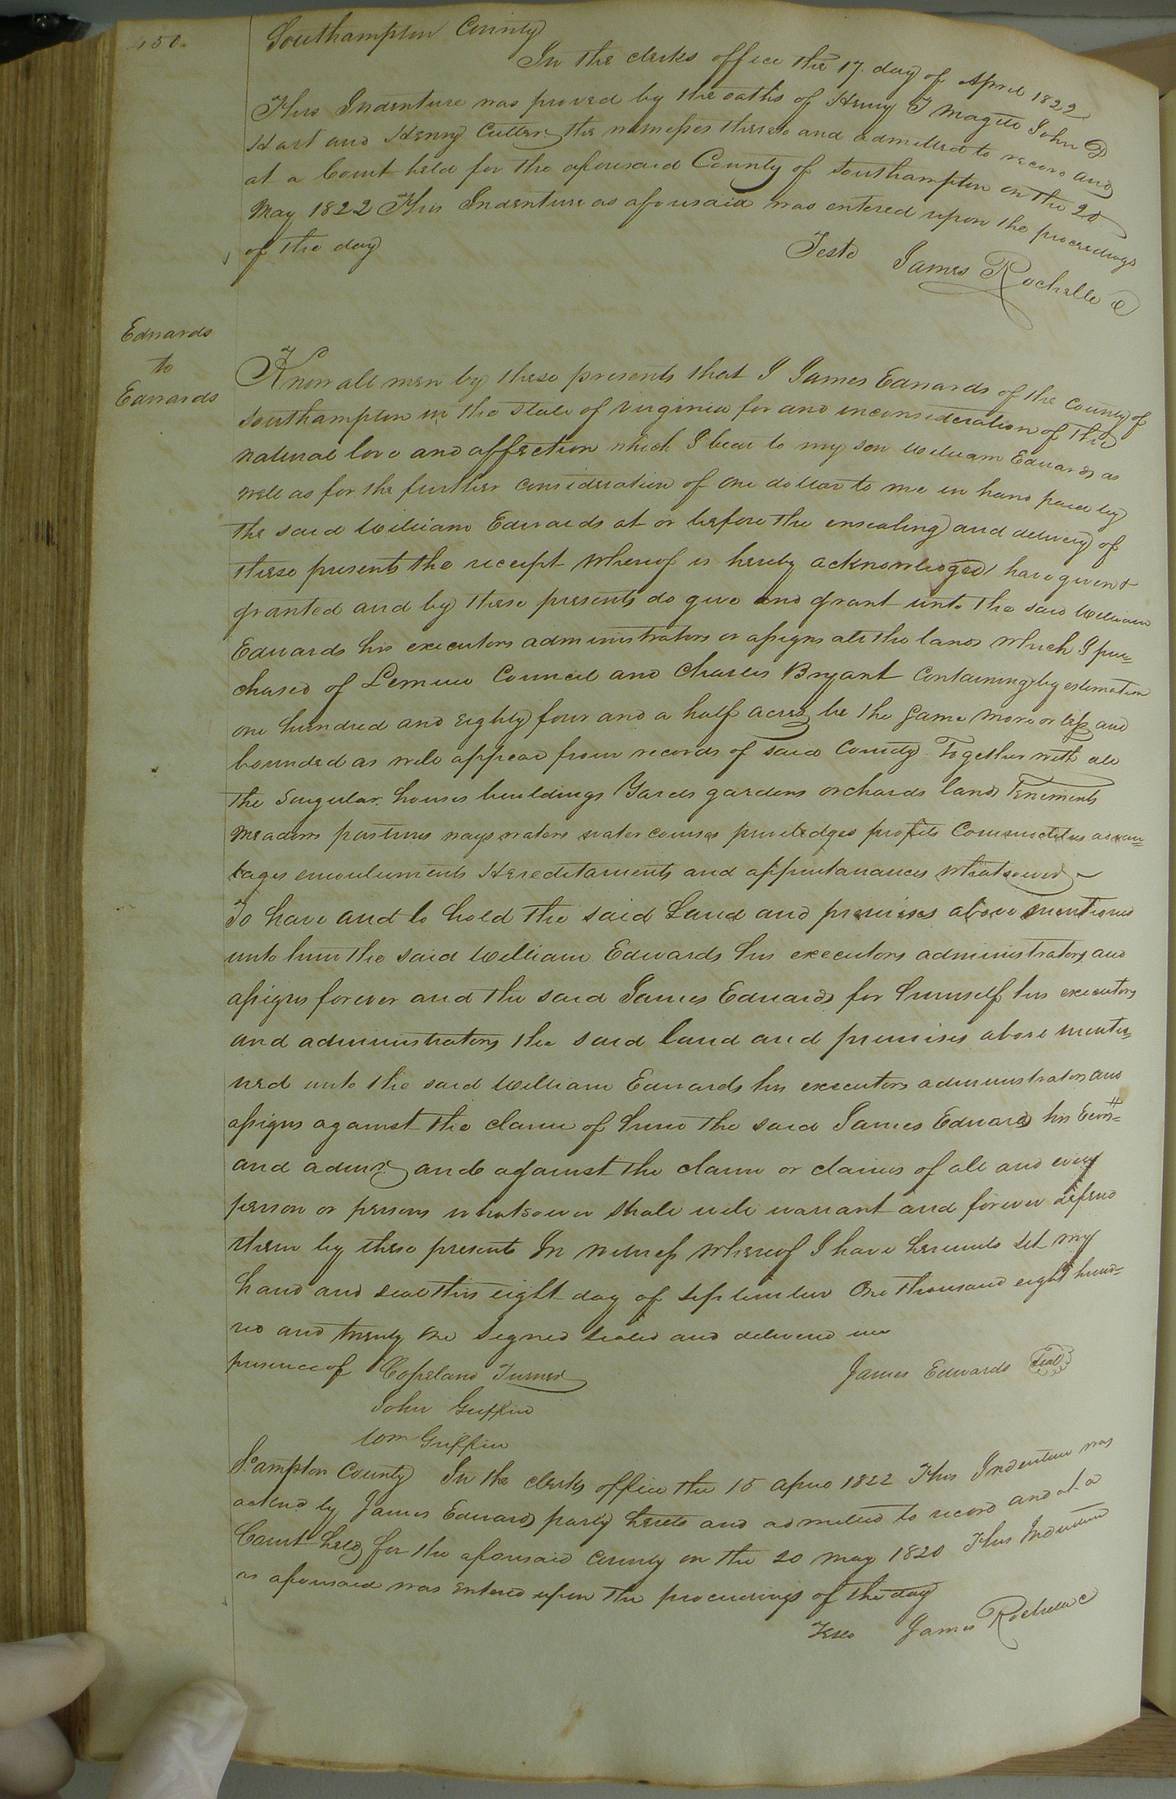 450.
Southampton County
In the clerks office the 17. day of April 1822
This Indenture was proved by the oaths of Henry J Magee John D
Hart and Henry Cutler the witnesses thereto and admitted to record and
at a Court held for the aforesaid County of Southampton on the 20
May 1822 This Indenture as aforesaid was entered upon the proceedings
of the day
Teste James Rochelle C
Edwards
to
Edwards
Know all men by these presents that I James Edwards of the County of
Southampton in the State of Virginia for and in consideration of the
natural love and affection which I bear to my son William Edwards as
well as for the further consideration of one dollar to me in hand paid by
the said William Edwards at or before the ensealing and delivery of
these presents the receipt whereof is hereby acknowledged have given &
granted and by these presents do give and grant unto the said William
Edwards his executors administrators or assigns all the land which I pur-
chased of Lemuel Council and Charles Bryant Containing by estimation
one hundred and eighty four and a half acres be the same more or less and
bounded as will appear from records of said County Together with all
the Singular houses buildings Yards gardens orchards land Teniments
meadows pastures ways waters water courses priviledges profits Commodities advan-
tages emoluments Hereditaments and appurtanances whatsoever
To have and to hold the said Land and premises above mentioned
unto him the said William Edwards his executors administrators and
assigns forever and the said James Edwards for himself his executors
and administrators the said land and premises above mentio-
ned unto the said William Edwards his executors administrators and
assigns against the claim of him the said James Edwards his Exors
and admrs and against the claim or claims of all and every
person or persons whatsoever shall will warrant and forever defend
them by these presents In witness whereof I have hereunto set my
hand and seal this eight day of September One thousand eight hund-
red and twenty one Signed Sealed and delivered in
presence of Copeland Turner James Edwards Seal
John Griffin
Wm Griffin
S.ampton County In the clerks office the 15 April 1822 This Indenture was
ackno by James Edwards party hereto and admitted to record and at a
Court held for the aforesaid County on the 20 May 1820 This Indenture
as aforesaid was entered upon the proceedings of the day
Teste James Rochelle C